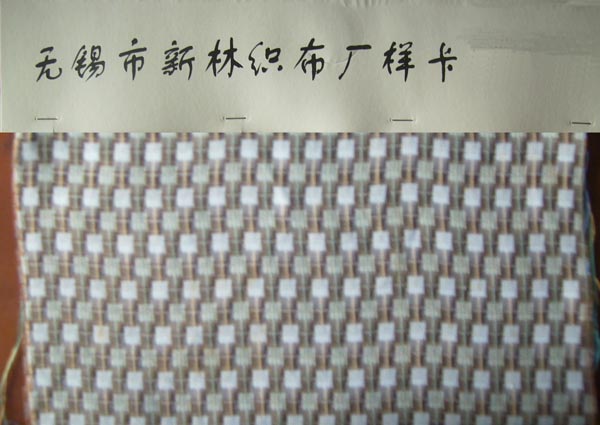 无锡市新林织布厂样卡